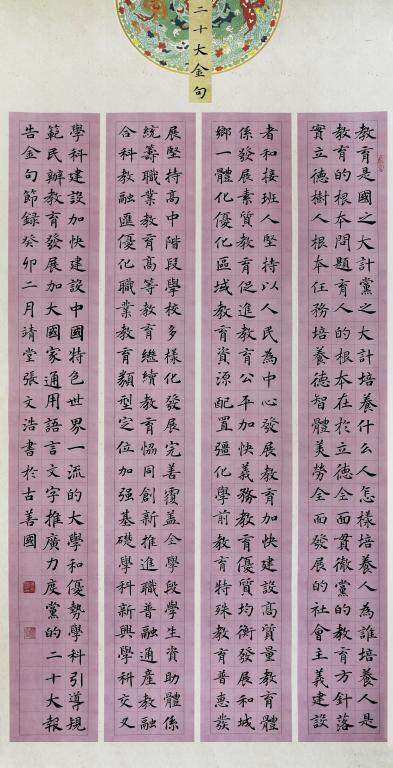 二十大金句
教育是國之大計黨之大計培養什么人怎樣培養人為誰培養人是
教育的根本問題育人的根本在於立德全面貫徹黨的教育方針落
實立德樹人根本任務培養德智體美勞全面發展的社會主義建設
者和接班人堅持以人民為中心發展教育加快建設高質量教育體
係發展素質教育促進教育公平加快義務教育優質均衡發展和城
鄉一體化優化區域教育資源配置彊化學前教育特殊教育普惠發
展堅持高中階段學校多樣化發展完善覆蓋全學段學生資助體係
統籌職業教育高等教育繼續教育協同創新推進職普融通產教融
合科教融匯優化職業教育類型定位加强基礎學科新興學科交叉
學科建設加快建設中國特色世界一流的大學和優勢學科引導規
範民辦教育發展加大國家通用語言文字推廣力度黨的二十大報
告金句節錄癸卯二月靖堂張文浩書於古善國